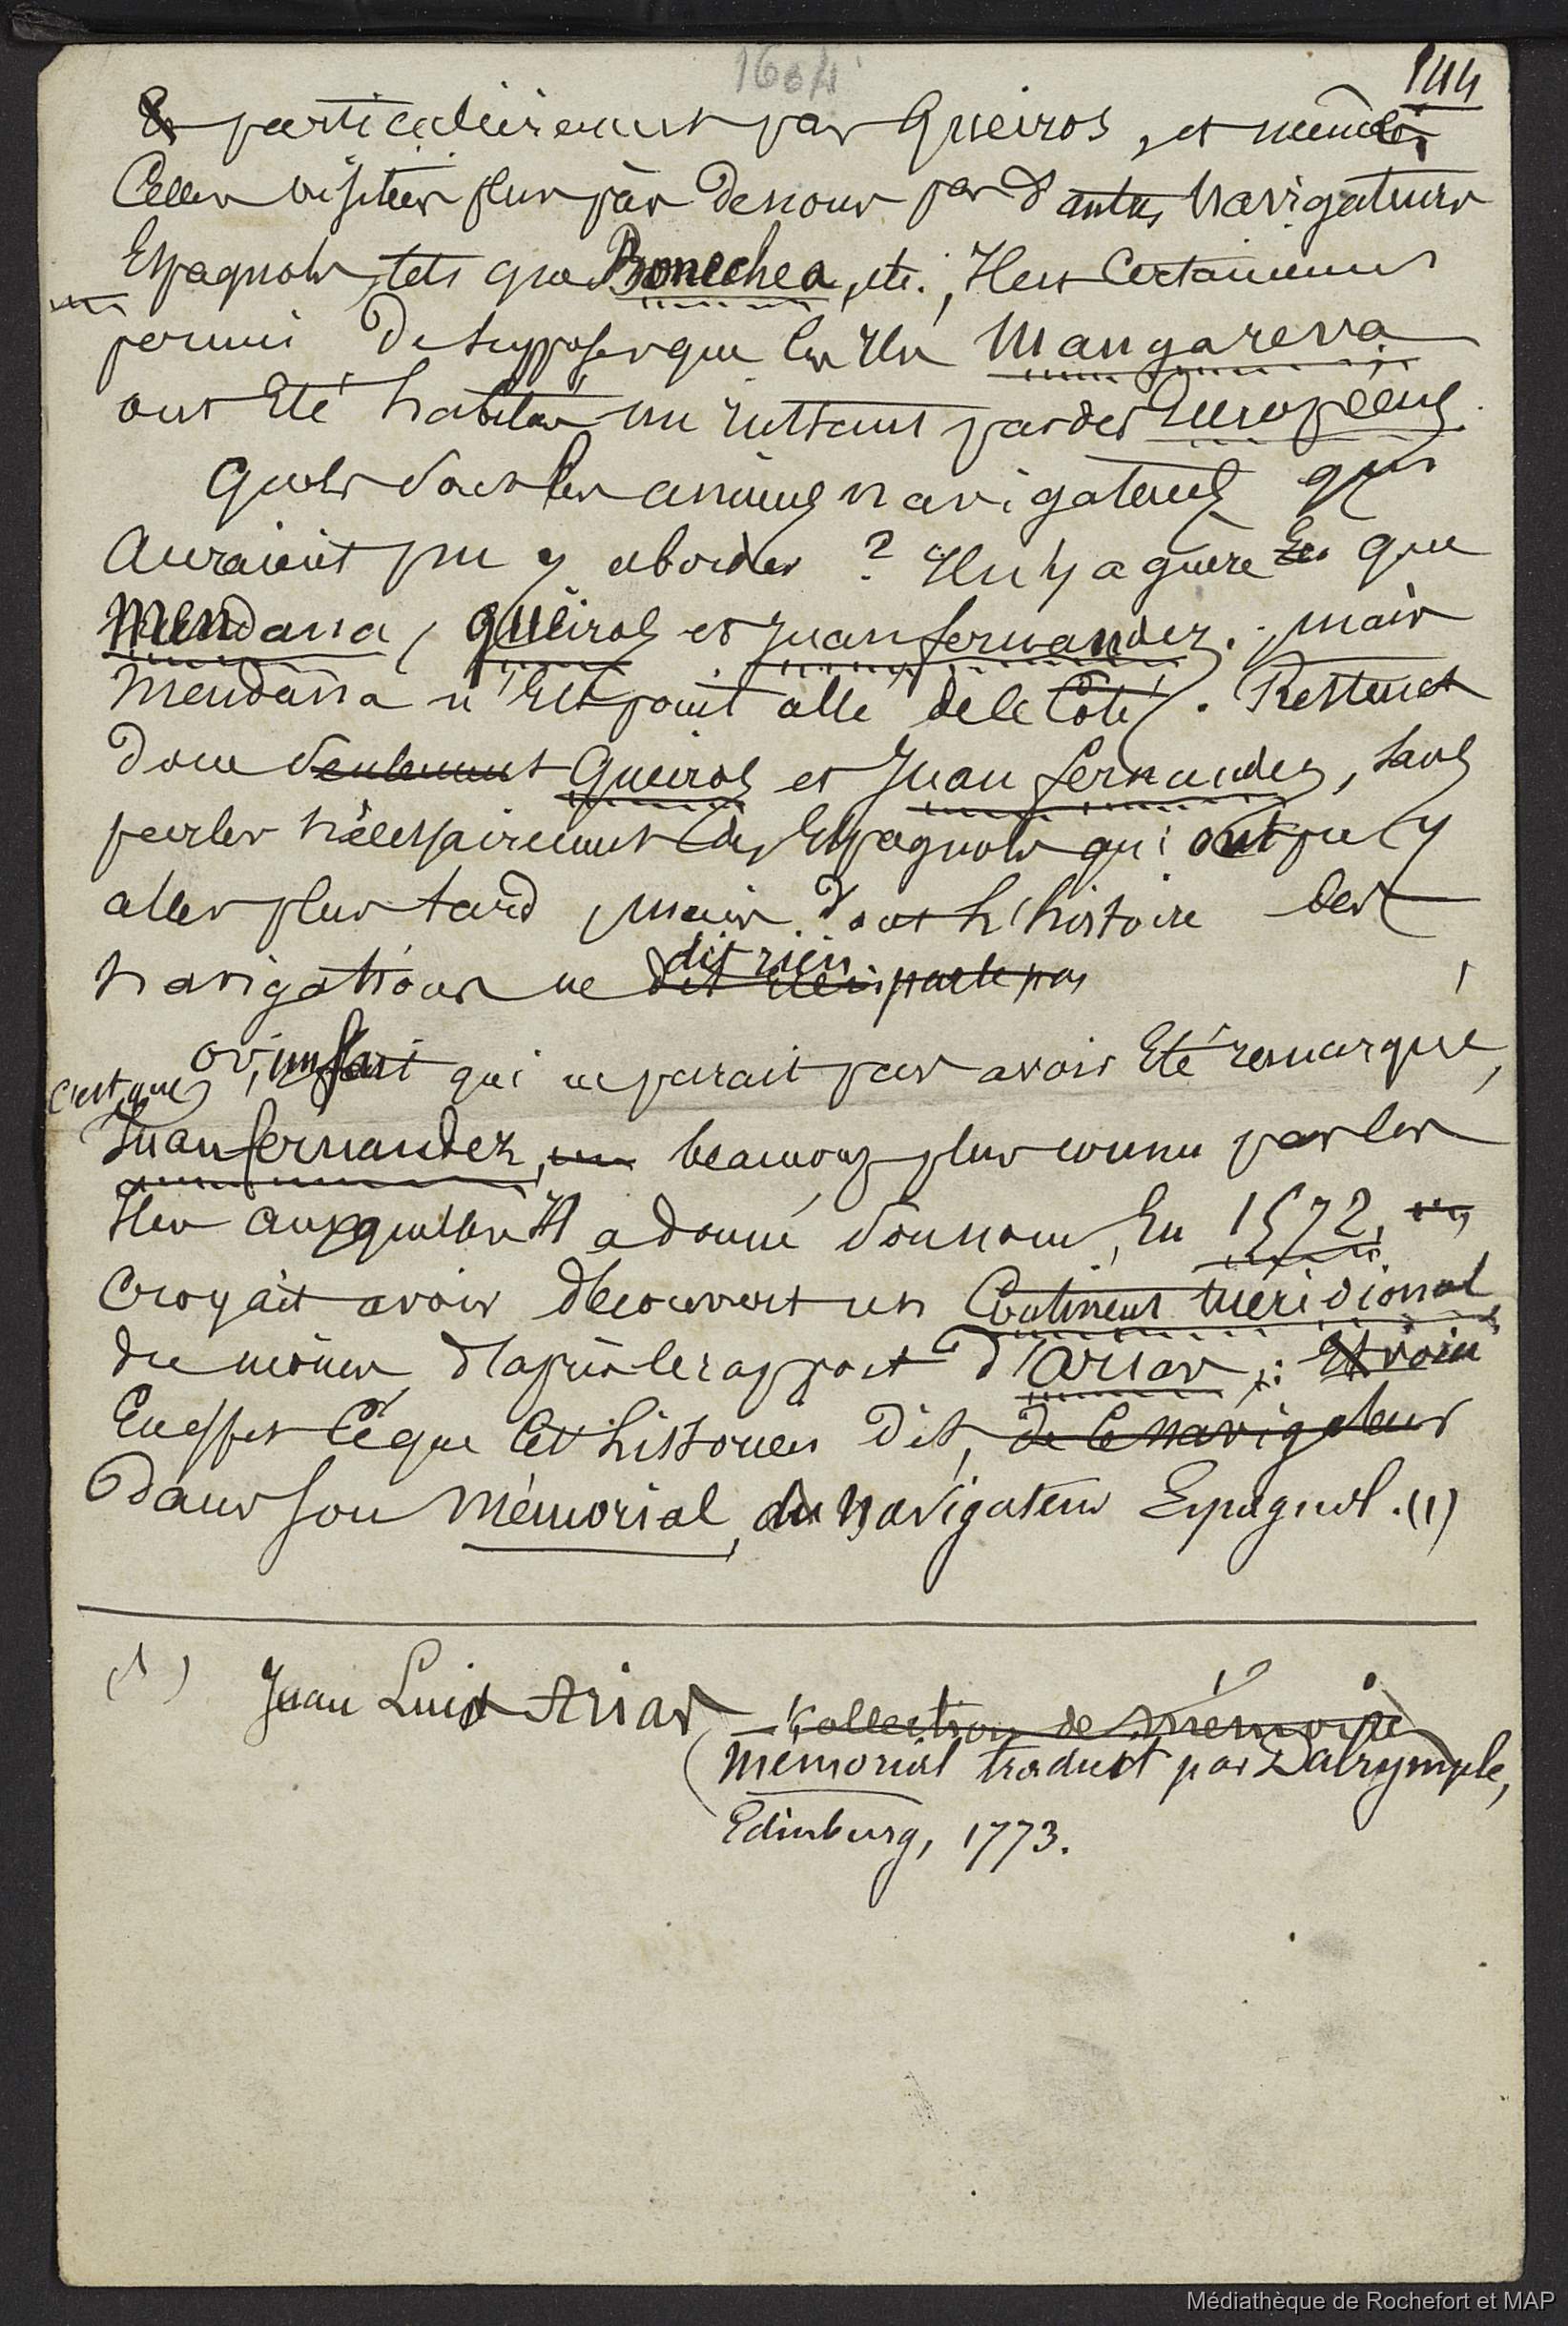 1604
144
& particulièrement par Queiros, et même
Celles visitées plus tard de nous par d'autres navigateurs
Espagnols, tels que Bonechea, etc., Il est certainement
permis de supposer que les Iles Mangareva
ont été habitées un instant par des Européens.
Quels sont les anciens navigateurs qui
Auraient pu y aborder ? Il n'y a guère Eu que
Mendana, Queiros et Juan fernandez ; mais
Mendana n'est point allé de ce Côté. Restent
donc seulement Queiros et Juan fernandez, sans
parler nécessairement des Espagnols qui ont pu y
aller plus tard, mais dont l'histoire des
dit rien
navigations ne dit rien parle pas
or, un fait qui ne parait pas avoir été remarqué,
c'est que
Juan fernandez, beaucoup plus connu par les
Iles auxquelles Il a donné son nom, En 1572,
croyait avoir découvert un Continent méridional
du moins d'après le rapport d'Arias ; Et voici
En effet Ce que Cet historien dit, de Ce navigateur
dans son Mémorial, du Navigateur Espagnol. (1)
(1) Juan Luis Arias Collection de mémoire
(Mémorial traduit par Dalrymple,
Edinburg, 1773.
Médiathèque de Rochefort et MAP